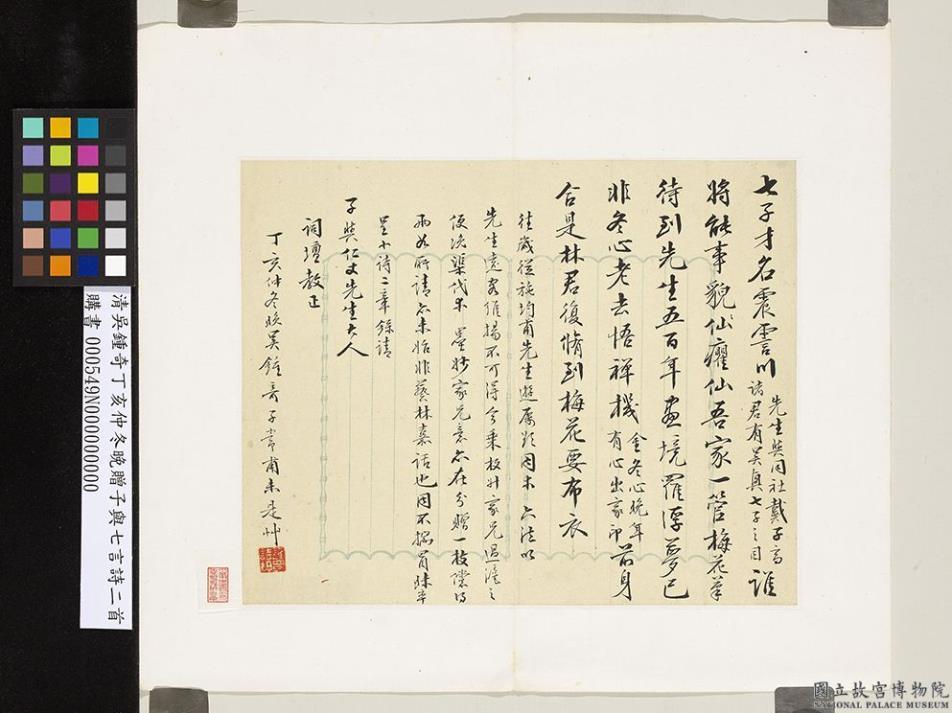 七子才名震雪川 先生與同社戴子高諸君有吳興七子之目 誰
將能事貌仙癯仙吾家一管梅花筆
待到先生五百年畫境羅浮夢已
非冬心老去悟禪機 金冬心晚年有心出家印 前身
合是林君復脩到梅花要布衣
往歲從施均甫先生遊屬 因木 六法以
先生遠客維揚不可得今乘 家兄過滬之
便決渠代求墨妙家兄意亦在分贈一枝 得
兩如所請亦未始非藝林嘉話也因不揣冒昧率
呈小詩二章錄請
子與仁丈先生大人
詞壇教正
丁亥仲冬晚吳鍾奇子常甫未是艸
清吳鍾奇丁亥仲冬晚贈子與七言詩二首
購書 000549N000000000
國立故宮博物院
NATIONAL PALACE MUSEUM